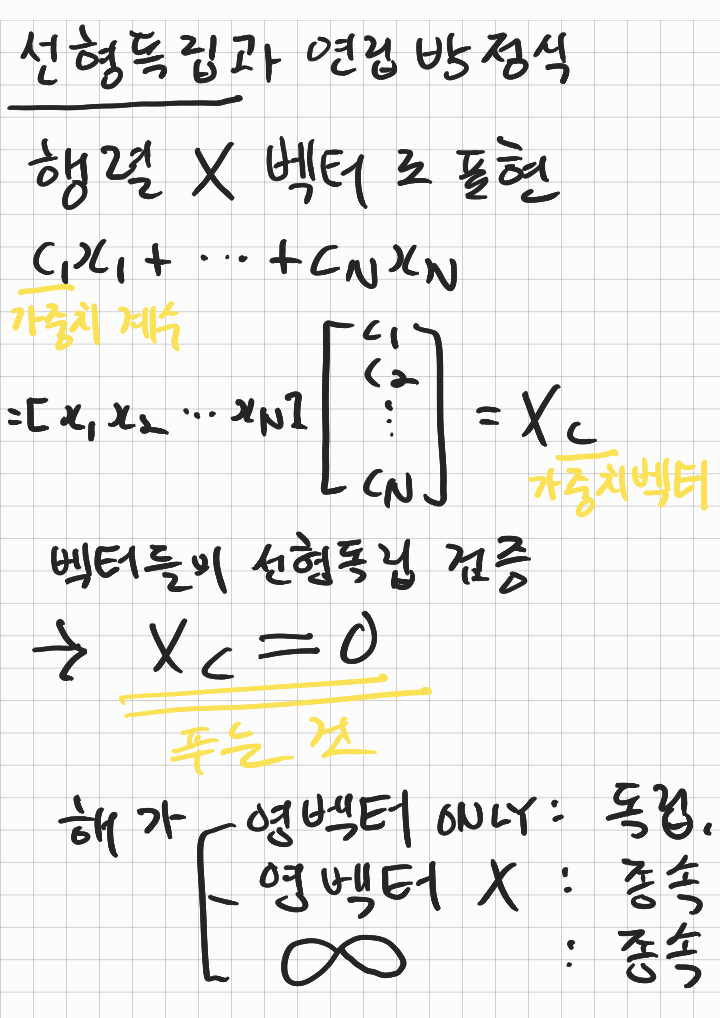 선형독립과 연립 방정식
행렬 X 벡터로 표현
c₁x₁ + ⋯ + c_N x_N
가중치 계수
=[x₁ x₂ ⋯ x_N] [c₁ c₂ ⋮ c_N] = Xc
가중치벡터
벡터들의 선형독립 검증
→ Xc = 0
푸는 것
해가
영벡터 ONLY : 독립.
영벡터 X : 종속
∞ : 종속